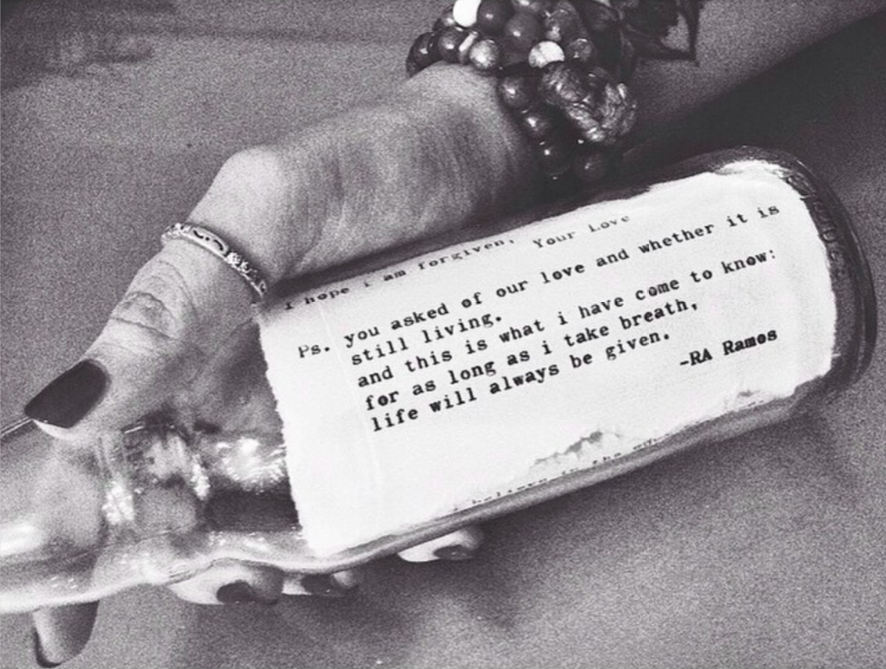 i hope i am forgiven, Your Love
Ps. you asked of our love and whether it is
still living.
and this is what i have come to know:
for as long as i take breath,
life will always be given.
-RA Ramos
i believe in the